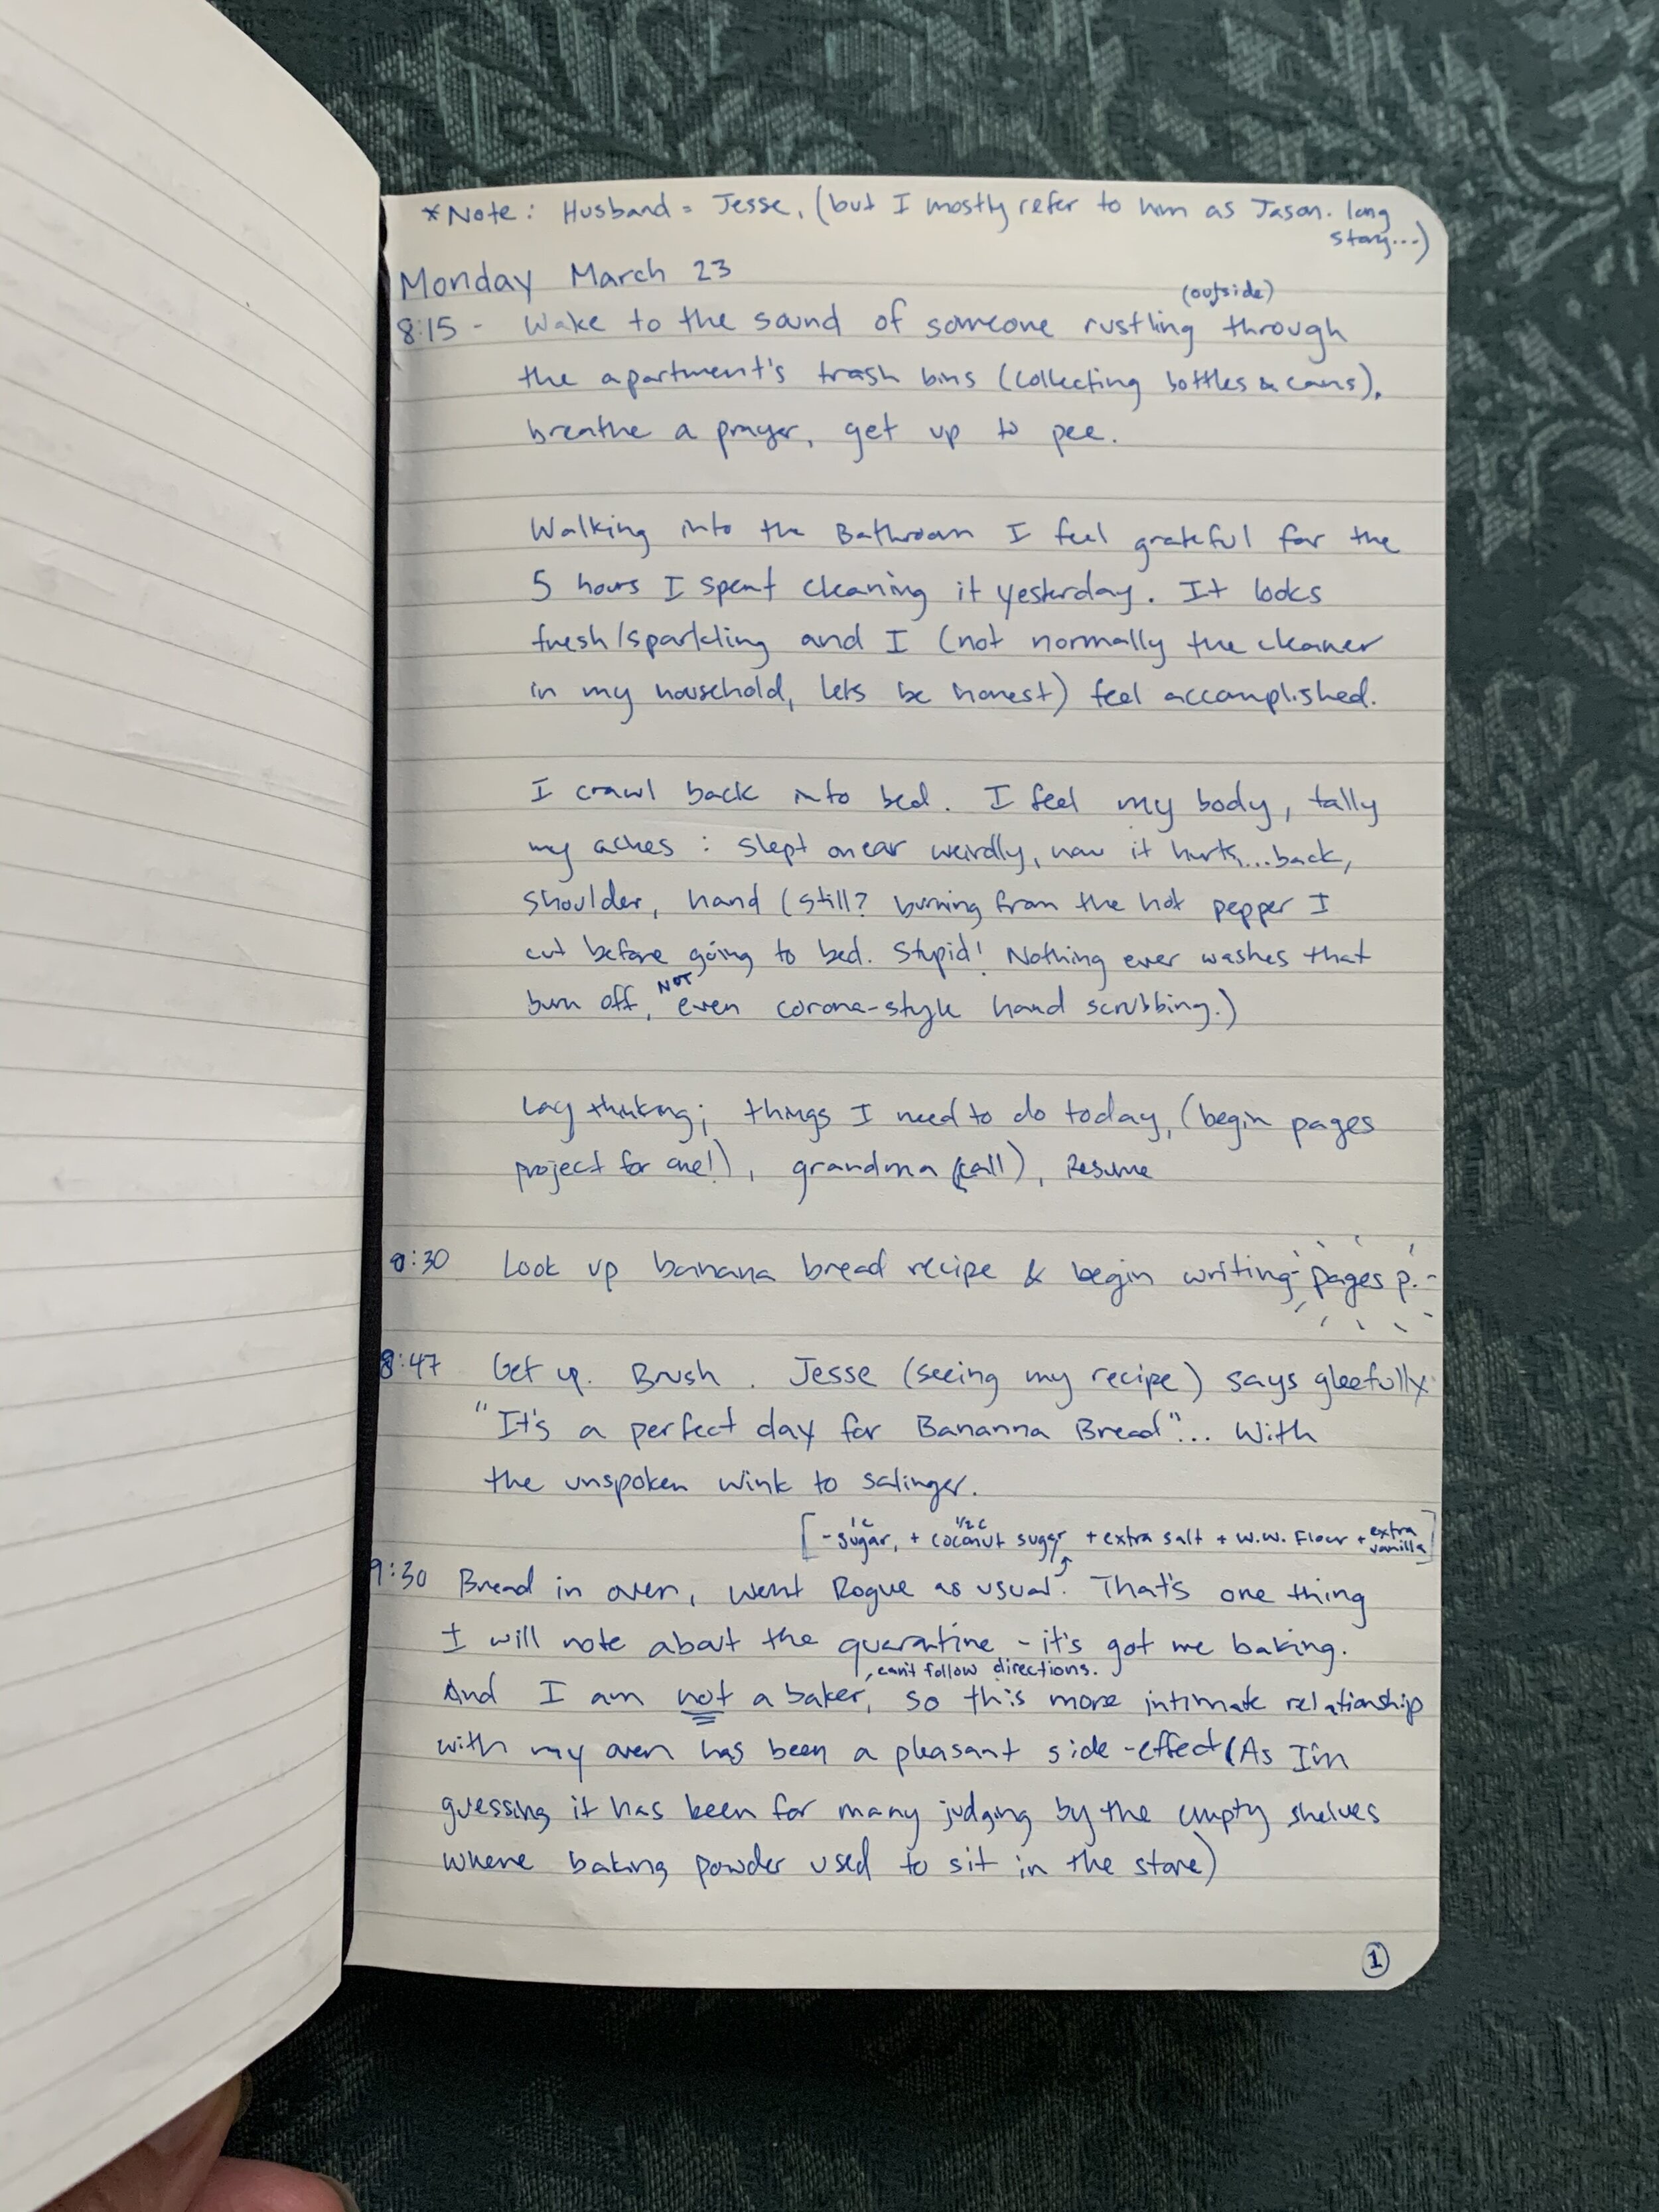 *Note: Husband = Jesse, (but I mostly refer to him as Jason. long
story...)
Monday March 23
(outside)
8:15 - Wake to the sound of someone rustling through
the apartment's trash bins (collecting bottles & cans).
breathe a prayer, get up to pee.
Walking into the Bathroom I feel grateful for the
5 hours I spent cleaning it yesterday. It looks
fresh/sparkling and I (not normally the cleaner
in my household, lets be honest) feel accomplished.
I crawl back into bed. I feel my body, tally
my aches : slept on ear weirdly, now it hurts...back,
shoulder, hand (still? burning from the hot pepper I
cut before going to bed. Stupid! Nothing ever washes that
NOT
burn off, even corona-style hand scrubbing.)
Lay thinking; things I need to do today, (begin pages
project for one!), grandma (call), Resume
8:30 Look up banana bread recipe & begin writing pages p.
8:47 Get up. Brush. Jesse (seeing my recipe) says gleefully
"It's a perfect day for Bananna Bread"... With
the unspoken wink to salinger.
1c 1/2 c
[-sugar, + coconut sugar + extra salt + W.W. Flour + extra
vanilla]
9:30 Bread in oven, went Rogue as usual. That's one thing
I will note about the quarantine - it's got me baking.
, can't follow directions.
And I am not a baker, so this more intimate relationship
with my oven has been a pleasant side-effect (As I'm
guessing it has been for many judging by the empty shelves
where baking powder used to sit in the store)
1